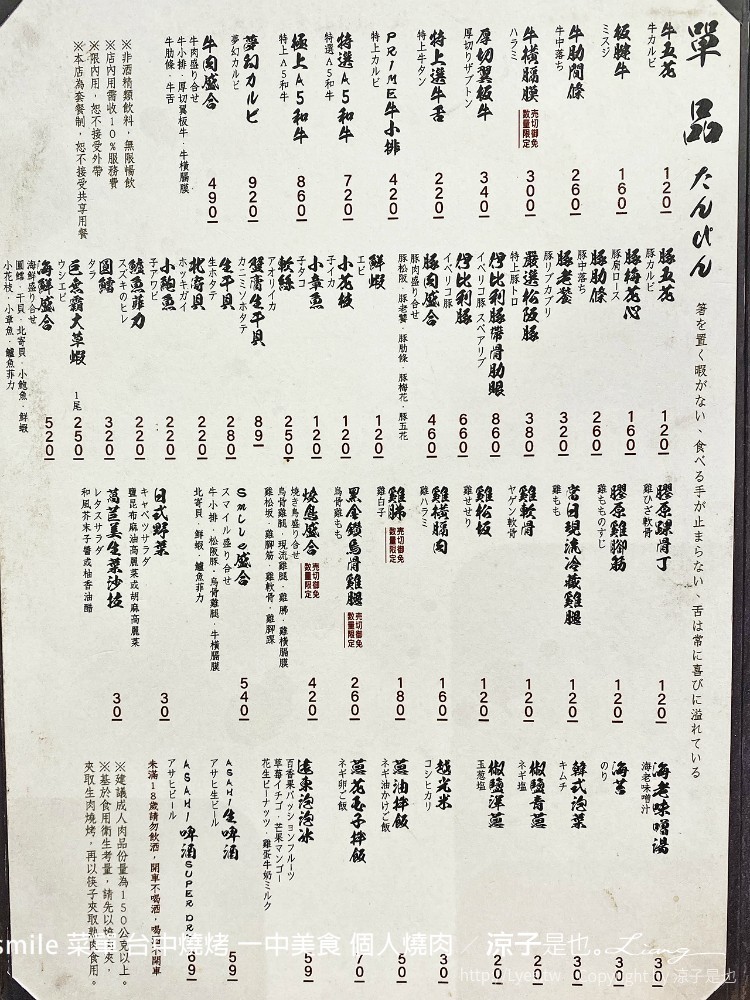 單品 たんぴん
箸を置く暇がない、食べる手が止まらない、舌は常に喜びに溢れている
牛五花
牛カルビ
120
板腱牛
ミスジ
160
牛肋間條
牛中落ち
260
牛橫膈膜 売切御免 数量限定
ハラミ
300
厚切翼板牛
厚切りザブトン
340
特上選牛舌
特上牛タン
220
PRIME牛小排
特上カルビ
420
特選A5和牛
特選A5和牛
720
極上A5和牛
特上A5和牛
860
夢幻カルビ
夢幻カルビ
920
牛肉盛合
牛肉盛り合せ
牛小排．厚切翼板牛．牛橫膈膜
牛肋條．牛舌
490
※非酒精類飲料，無限暢飲
※店內用需收10%服務費
※限內用，恕不接受外帶
※本店為套餐制，恕不接受共享用餐
豚五花
豚カルビ
120
豚梅花心
豚肩ロース
160
豚肋條
豚中落ち
260
豚老饕
豚リブカブリ
320
嚴選松阪豚
特上豚トロ
380
伊比利豚帶骨肋眼
イベリコ豚 スペアリブ
860
伊比利豚
イベリコ豚
660
豚肉盛合
豚肉盛り合せ
豚松阪．豚老饕．豚肋條．豚梅花．豚五花
460
鮮蝦
エビ
120
小花枝
子イカ
120
小章魚
子タコ
120
軟絲
アオリイカ
250
蟹膏生干貝
カニミソホタテ
89
生干貝
生ホタテ
280
北寄貝
ホッキガイ
220
小鮑魚
子アワビ
220
鱸魚菲力
スズキのヒレ
220
圓鱈
タラ
320
巨無霸大草蝦
ウシエビ
1尾 250
海鮮盛合
海鮮盛り合せ
圓鱈．干貝．北寄貝．小鮑魚．鮮蝦
小花枝．小章魚．鱸魚菲力
520
膠原腳骨丁
雞ひざ軟骨
120
膠原雞腳筋
雞もものすじ
120
當日現流冷藏雞腿
雞もも
120
雞軟骨
ヤゲン軟骨
120
雞松板
雞せせり
120
雞橫膈肉
雞ハラミ
160
雞脯 売切御免 数量限定
雞白子
180
黑金鑽烏骨雞腿 売切御免 数量限定
烏骨雞もも
260
燒鳥盛合 売切御免 数量限定
燒き鳥盛り合せ
烏骨雞腿．現流雞腿．雞脯．雞橫膈膜
雞松坂．雞腳筋．雞軟骨．雞腳踝
420
Smile盛合
スマイル盛り合せ
牛小排．松阪豚．烏骨雞腿．牛橫膈膜
北寄貝．鮮蝦．鱸魚菲力
540
日式野菜
キャベツサラダ
鹽昆布麻油高麗菜或胡麻高麗菜
30
萵苣美生菜沙拉
レタスサラダ
和風芥末子醬或柚香油醋
30
海老味噌湯
海老味噌汁
30
海苔
のり
30
韓式泡菜
キムチ
30
椒鹽青蔥
ネギ塩
20
椒鹽洋蔥
玉葱塩
20
越光米
コシヒカリ
30
蔥油拌飯
ネギ油かけご飯
50
蔥花玉子拌飯
ネギ卵ご飯
70
遠東泡泡冰
百香果パッションフルーツ
草莓イチゴ．芒果マンゴー
花生ピーナッツ．雞蛋牛奶ミルク
59
ASAHI生啤酒
アサヒ生ビール
59
ASAHI啤酒SUPER DRY
アサヒビール
69
未滿18歲請勿飲酒，開車不喝酒，喝酒不開車
※建議成人肉品份量為150公克以上。
※基於食用衛生考量，請先以燒肉夾，
夾取生肉燒烤，再以筷子夾取熟肉食用。
smile 菜單 台中燒烤 一中美食 個人燒肉 ／ 涼子是也。Liang